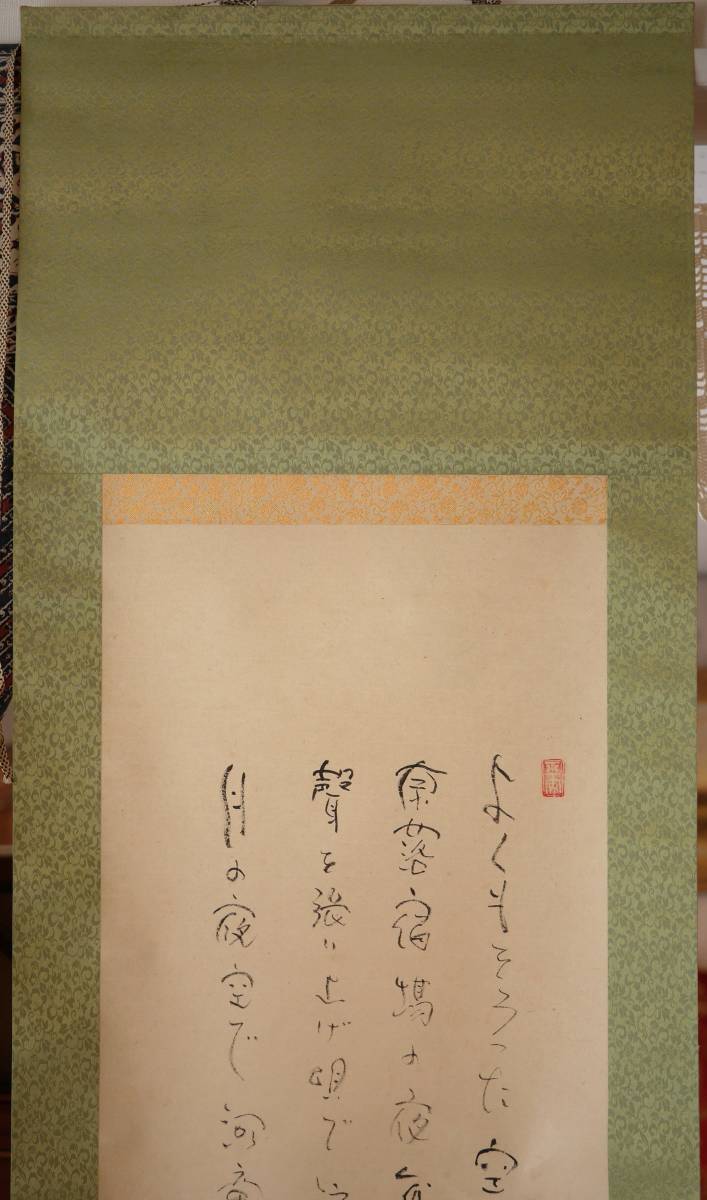 よくもそろった空
奈落宿場の夜
聲を張り上げ唄で
月の夜空で河